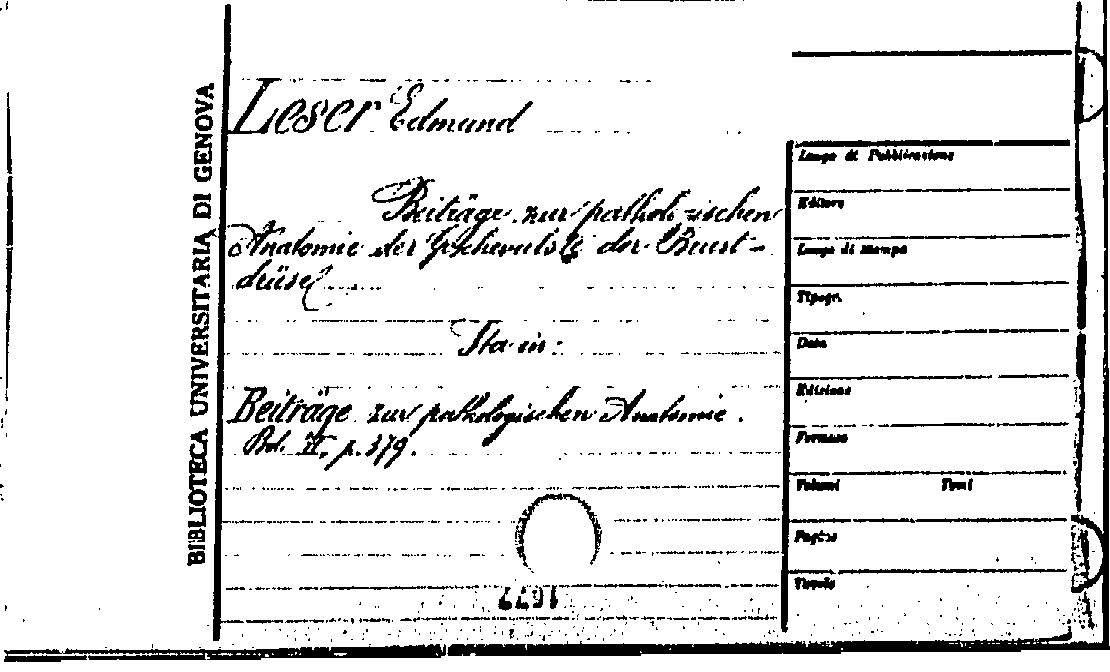 BIBLIOTECA UNIVERSITARIA DI GENOVA
Leser Edmund
Beiträge zur pathologischen
Anatomie der Geschwulste der Brust-
drüse
Sta in:
Beiträge zur pathologischen Anatomie.
Bd. II, p. 379.
Luogo di Pubblicazione
Editore
Luogo di stampa
Tipogr.
Data
Edizione
Formato
Volumi Tomi
Pagine
Tavole
1677